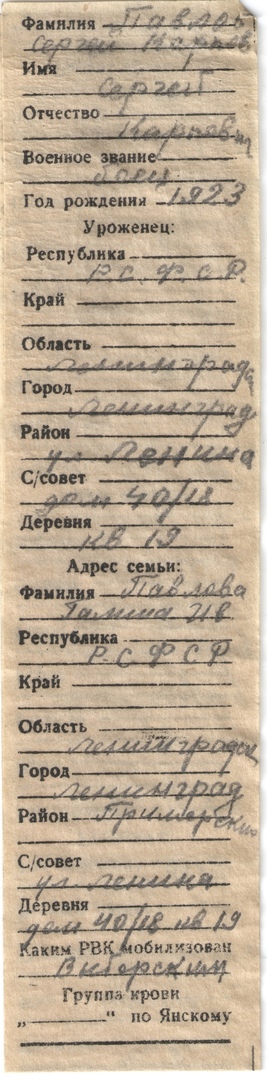 Фамилия Павлов
Сергей Карпов
Имя
Сергей
Отчество
Карпович
Военное звание
боец
Год рождения 1923
Уроженец:
Республика
Р.С.Ф.С.Р.
Край
Область
Ленинградск
Город
Ленинград
Район
ул Ленина
С/совет
дом 40/18
Деревня
кв 19
Адрес семьи:
Фамилия Павлова
Галина Ив
Республика
Р.С.Ф.С.Р
Край
Область
Ленинградск
Город
Ленинград
Район Приморский
С/совет
ул. Ленина
Деревня
дом 40/18 кв 19
Каким РВК мобилизован
Выборским
Группа крови
„ “ по Янскому